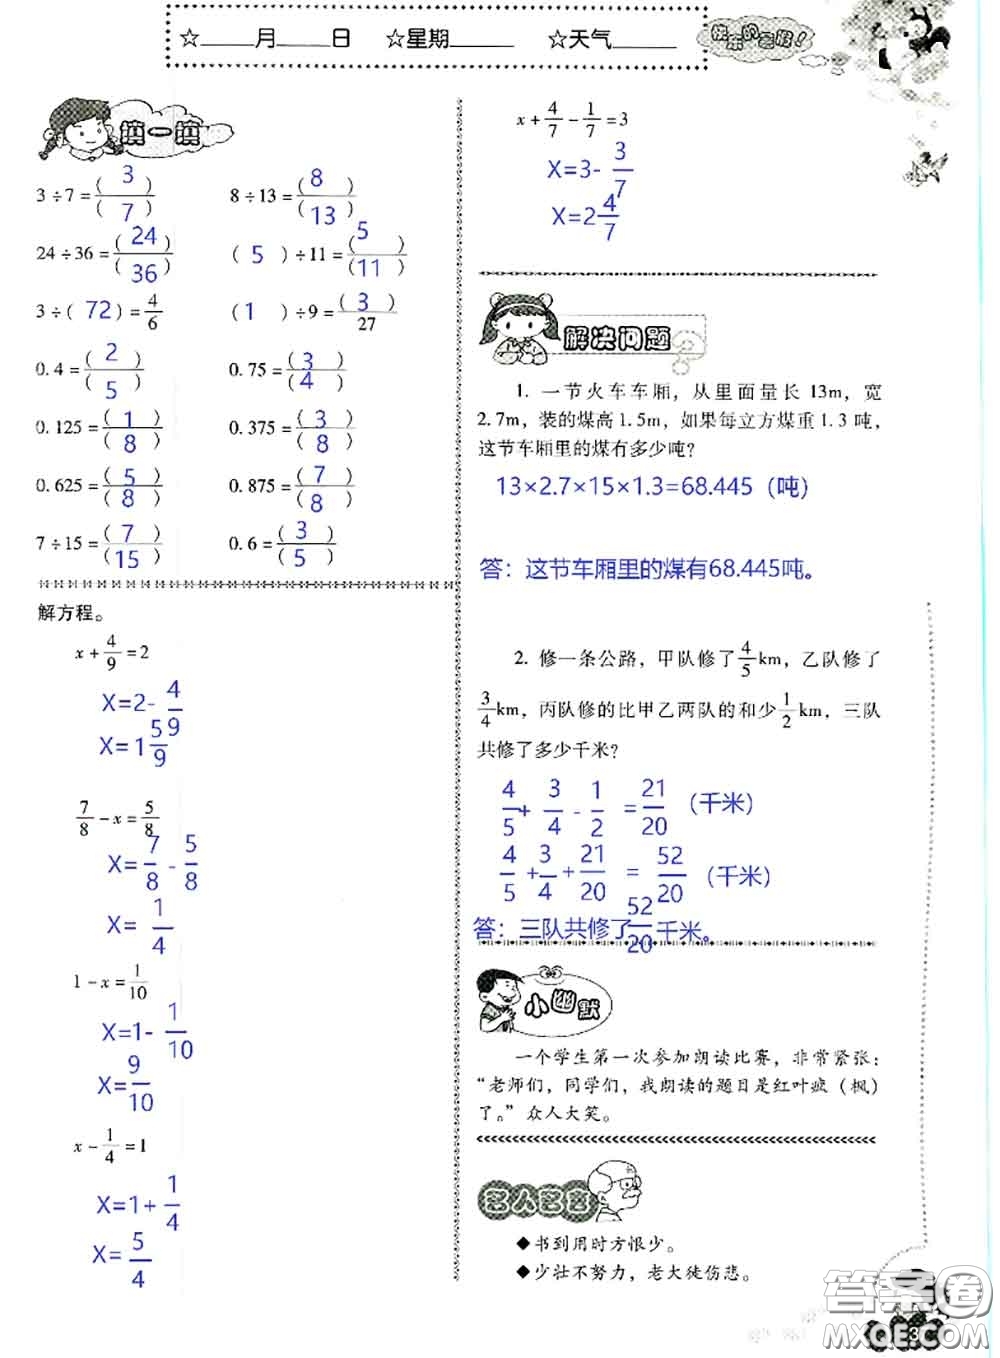 ☆____月____日 ☆星期____ ☆天气____
快乐的寒假！
填一填
3÷7=(3)/(7) 8÷13=(8)/(13)
24÷36=(24)/(36) (5)÷11=(5)/(11)
3÷(72)=4/6 (1)÷9=(3)/27
0.4=(2)/(5) 0.75=(3)/(4)
0.125=(1)/(8) 0.375=(3)/(8)
0.625=(5)/(8) 0.875=(7)/(8)
7÷15=(7)/(15) 0.6=(3)/(5)
解方程。
x+4/9=2
X=2-4/9
X=1 5/9
7/8-x=5/8
X=7/8-5/8
X=1/4
1-x=1/10
X=1-1/10
X=9/10
x-1/4=1
X=1+1/4
X=5/4
x+4/7-1/7=3
X=3-3/7
X=2 4/7
解决问题
1. 一节火车车厢，从里面量长 13m，宽
2.7m，装的煤高1.5m，如果每立方煤重1.3 吨，
这节车厢里的煤有多少吨？
13×2.7×15×1.3=68.445（吨）
答：这节车厢里的煤有68.445吨。
2. 修一条公路，甲队修了4/5km，乙队修了
3/4km，丙队修的比甲乙两队的和少1/2km，三队
共修了多少千米？
4/5+3/4-1/2=21/20（千米）
4/5+3/4+21/20=52/20（千米）
答：三队共修了52/20千米。
小幽默
一个学生第一次参加朗读比赛，非常紧张：
“老师们，同学们，我朗读的题目是红叶疯（枫）
了。”众人大笑。
名人名言
◆书到用时方恨少。
◆少壮不努力，老大徒伤悲。
答案圈
MXQE.COM
3